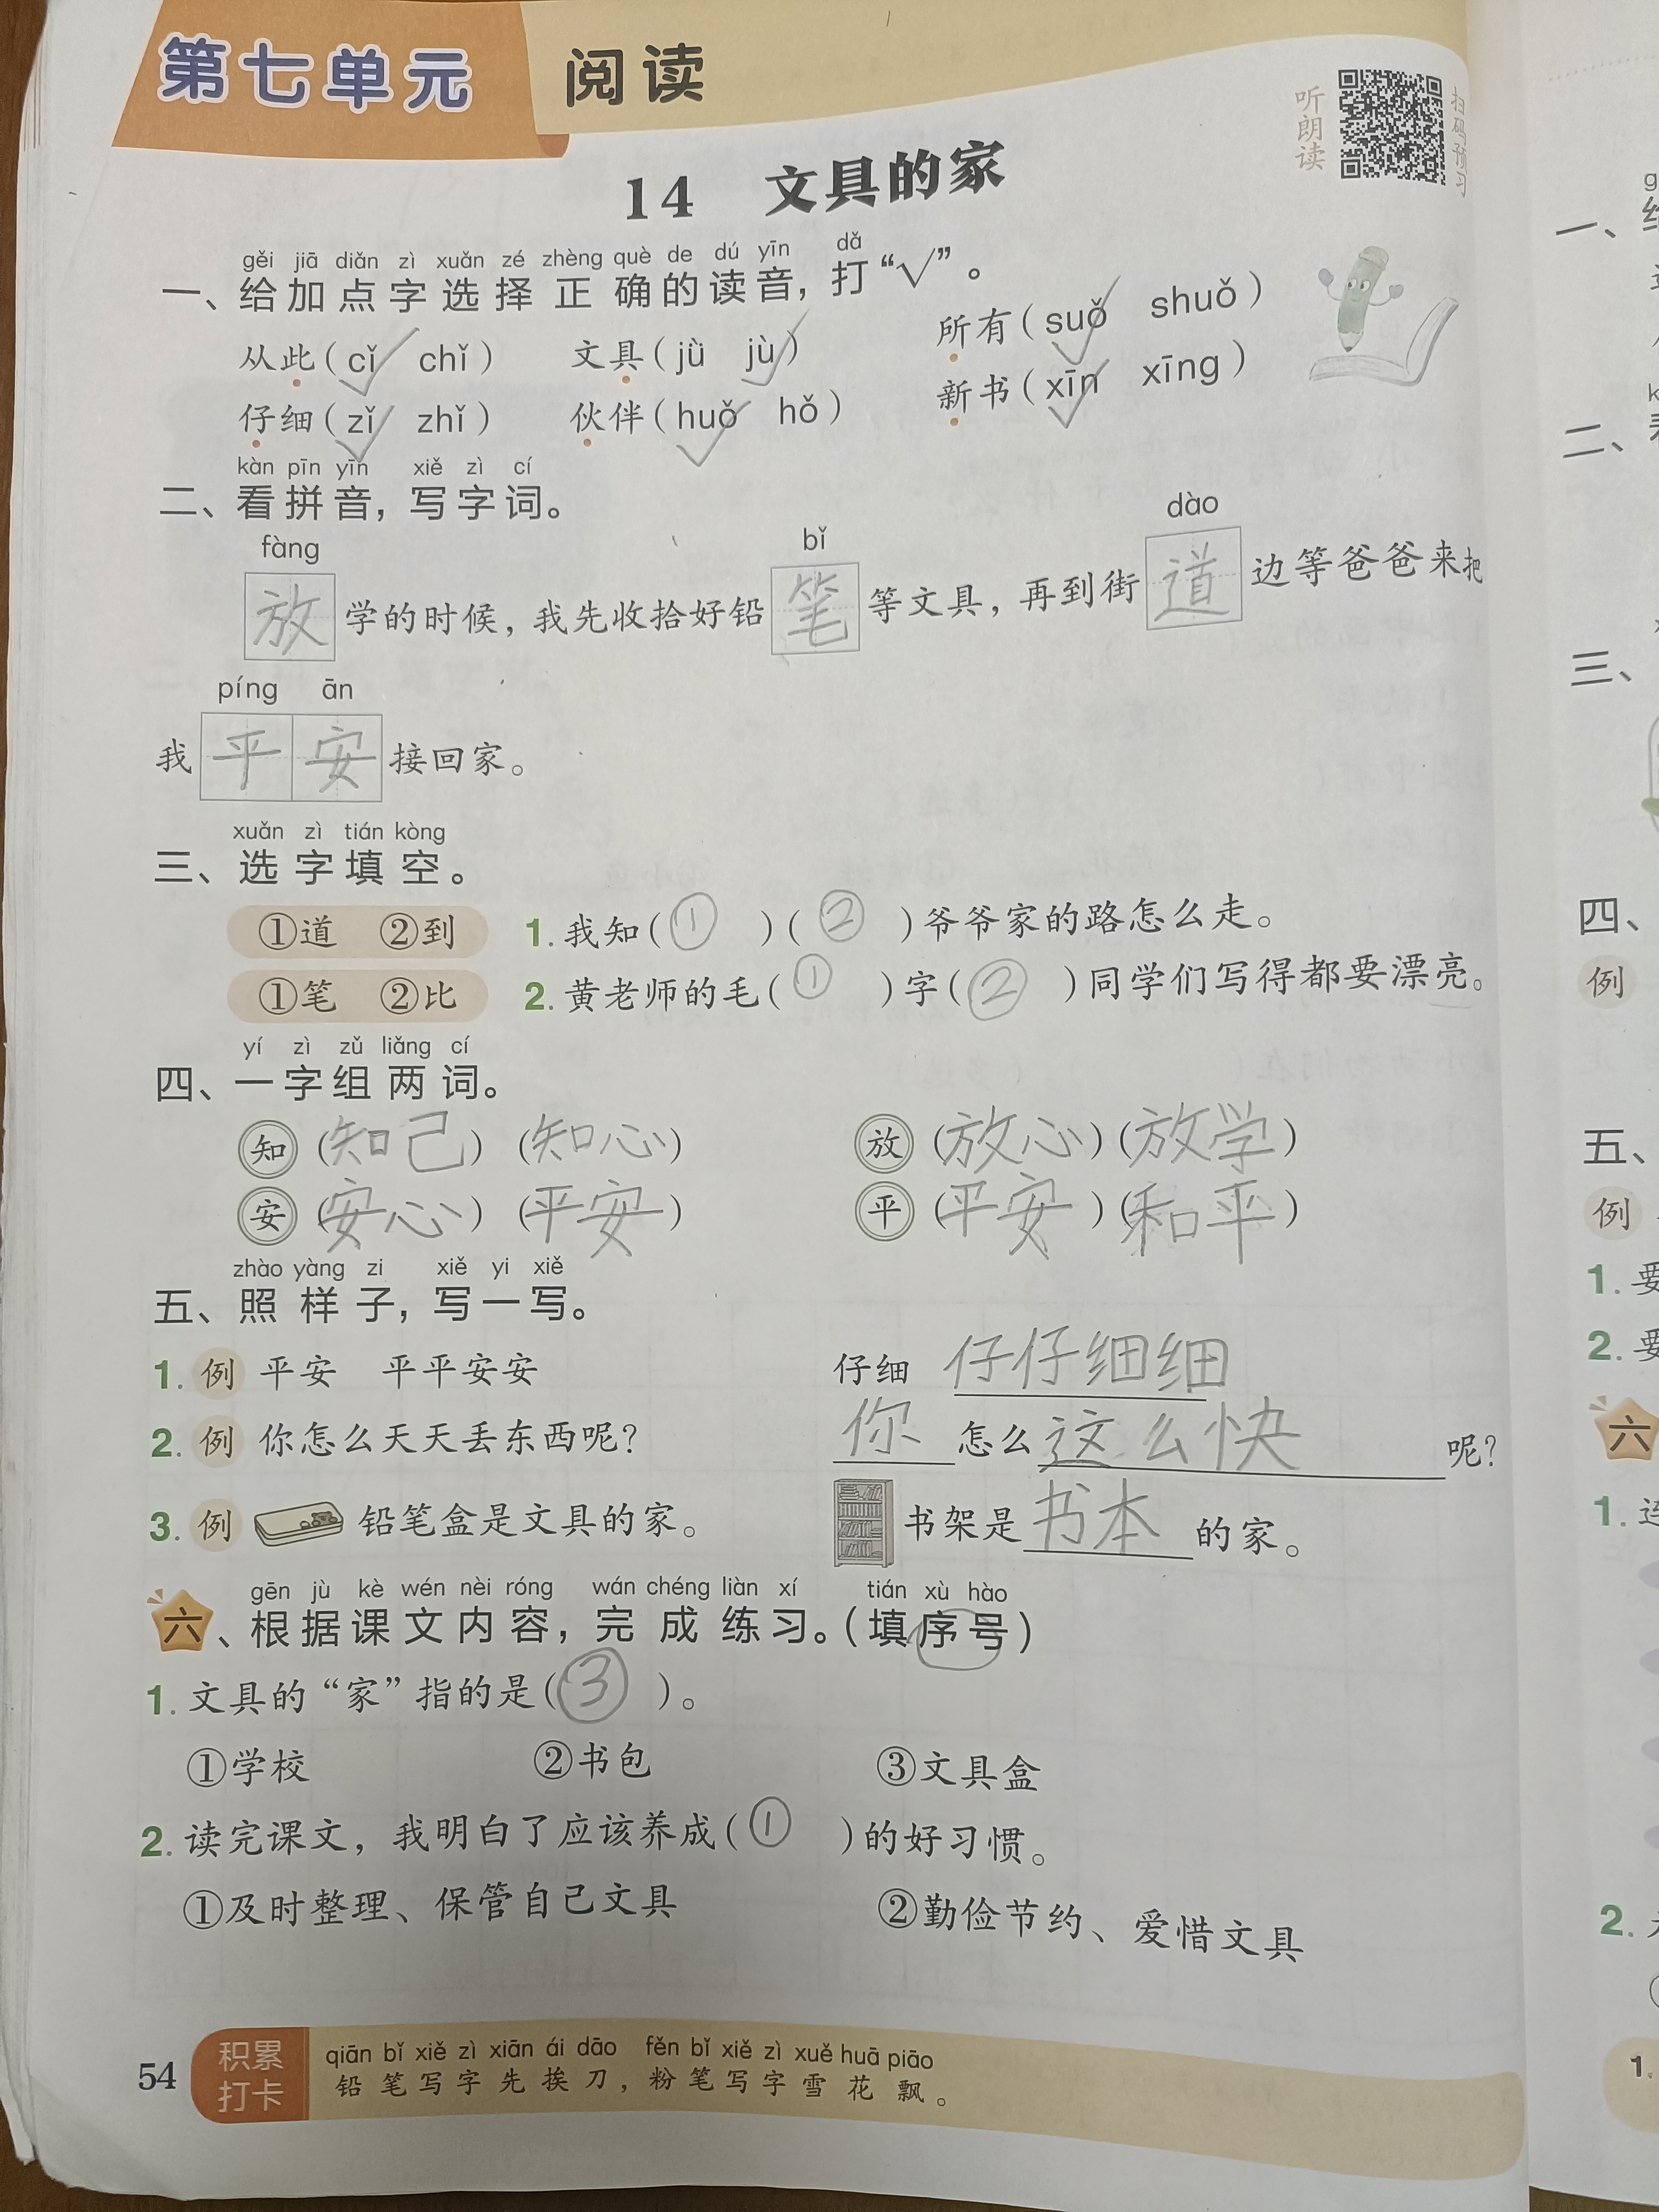 第七单元 阅读
听朗读
扫码预习
14 文具的家
gěi jiā diǎn zì xuǎn zé zhèng què de dú yīn dǎ
一、给加点字选择正确的读音，打“√”。
从此（cǐ✓ chǐ） 文具（jǜ jù✓） 所有（suǒ✓ shuǒ）
仔细（zǐ✓ zhǐ） 伙伴（huǒ✓ hǒ） 新书（xīn✓ xīng）
kàn pīn yīn xiě zì cí
二、看拼音，写字词。
fàng bǐ dào
放学的时候，我先收拾好铅笔等文具，再到街道边等爸爸来把
píng ān
我平安接回家。
xuǎn zì tián kòng
三、选字填空。
①道 ②到 1. 我知（①）（②）爷爷家的路怎么走。
①笔 ②比 2. 黄老师的毛（①）字（②）同学们写得都要漂亮。
yí zì zǔ liǎng cí
四、一字组两词。
知（知己）（知心） 放（放心）（放学）
安（安心）（平安） 平（平安）（和平）
zhào yàng zi xiě yi xiě
五、照样子，写一写。
1. 例 平安 平平安安 仔细 仔仔细细
2. 例 你怎么天天丢东西呢？ 你怎么这么快呢？
3. 例 铅笔盒是文具的家。 书架是书本的家。
gēn jù kè wén nèi róng wán chéng liàn xí tián xù hào
六、根据课文内容，完成练习。（填序号）
1. 文具的“家”指的是（③）。
①学校 ②书包 ③文具盒
2. 读完课文，我明白了应该养成（①）的好习惯。
①及时整理、保管自己文具 ②勤俭节约、爱惜文具
54 积累打卡
qiān bǐ xiě zì xiān ái dāo fěn bǐ xiě zì xuě huā piāo
铅笔写字先挨刀，粉笔写字雪花飘。
一、
二、
三、
四、
例
五、
例
1. 要
2. 要
六
1.
2.
1.